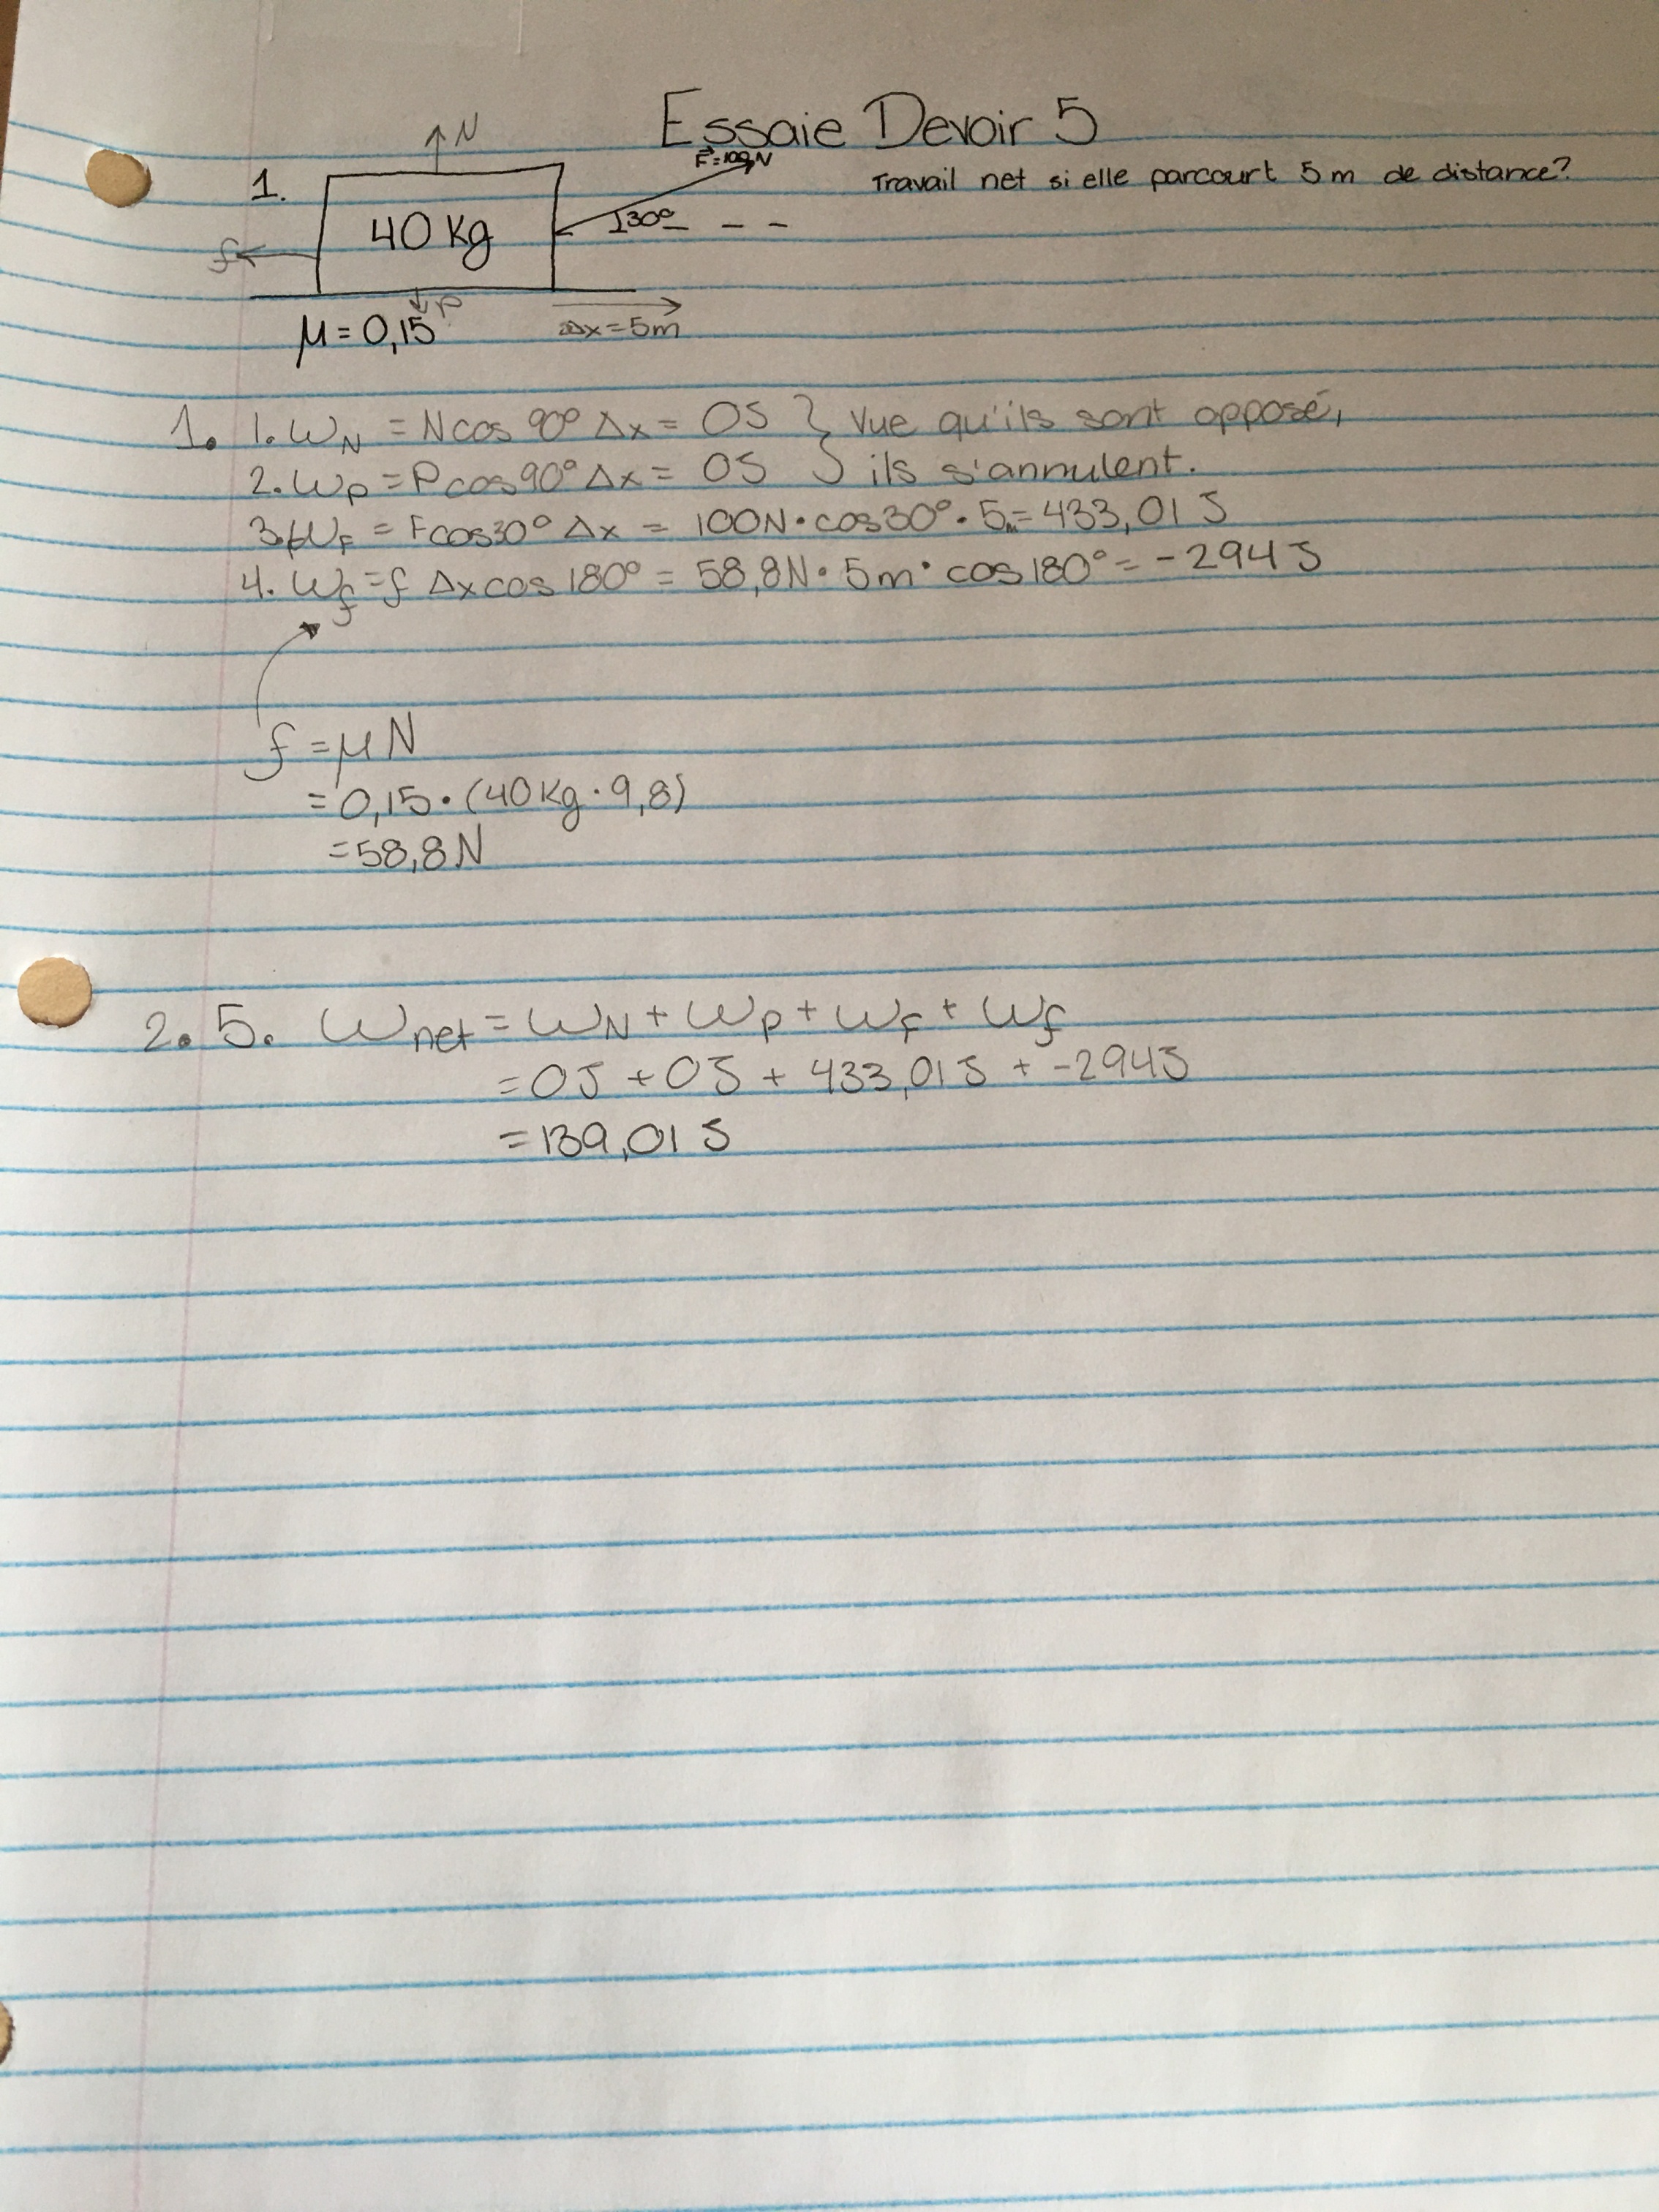 Essaie Devoir 5
1.
N
F⃗=100N
Travail net si elle parcourt 5m de distance?
40 Kg
30°
f
P
μ = 0,15
Δx=5m
1. 1. WN = Ncos 90° Δx = 0J } Vue qu'ils sont opposé,
2. Wp = Pcos90° Δx = 0J } ils s'annulent.
3. WF = Fcos30° Δx = 100N•cos30°•5m= 433,01 J
4. Wf = f Δxcos 180° = 58,8N• 5m• cos 180° = -294 J
f = μN
= 0,15•(40Kg•9,8)
=58,8N
2. 5. Wnet = WN + Wp + WF + Wf
= 0J + 0J + 433,01J + -294J
= 139,01 J